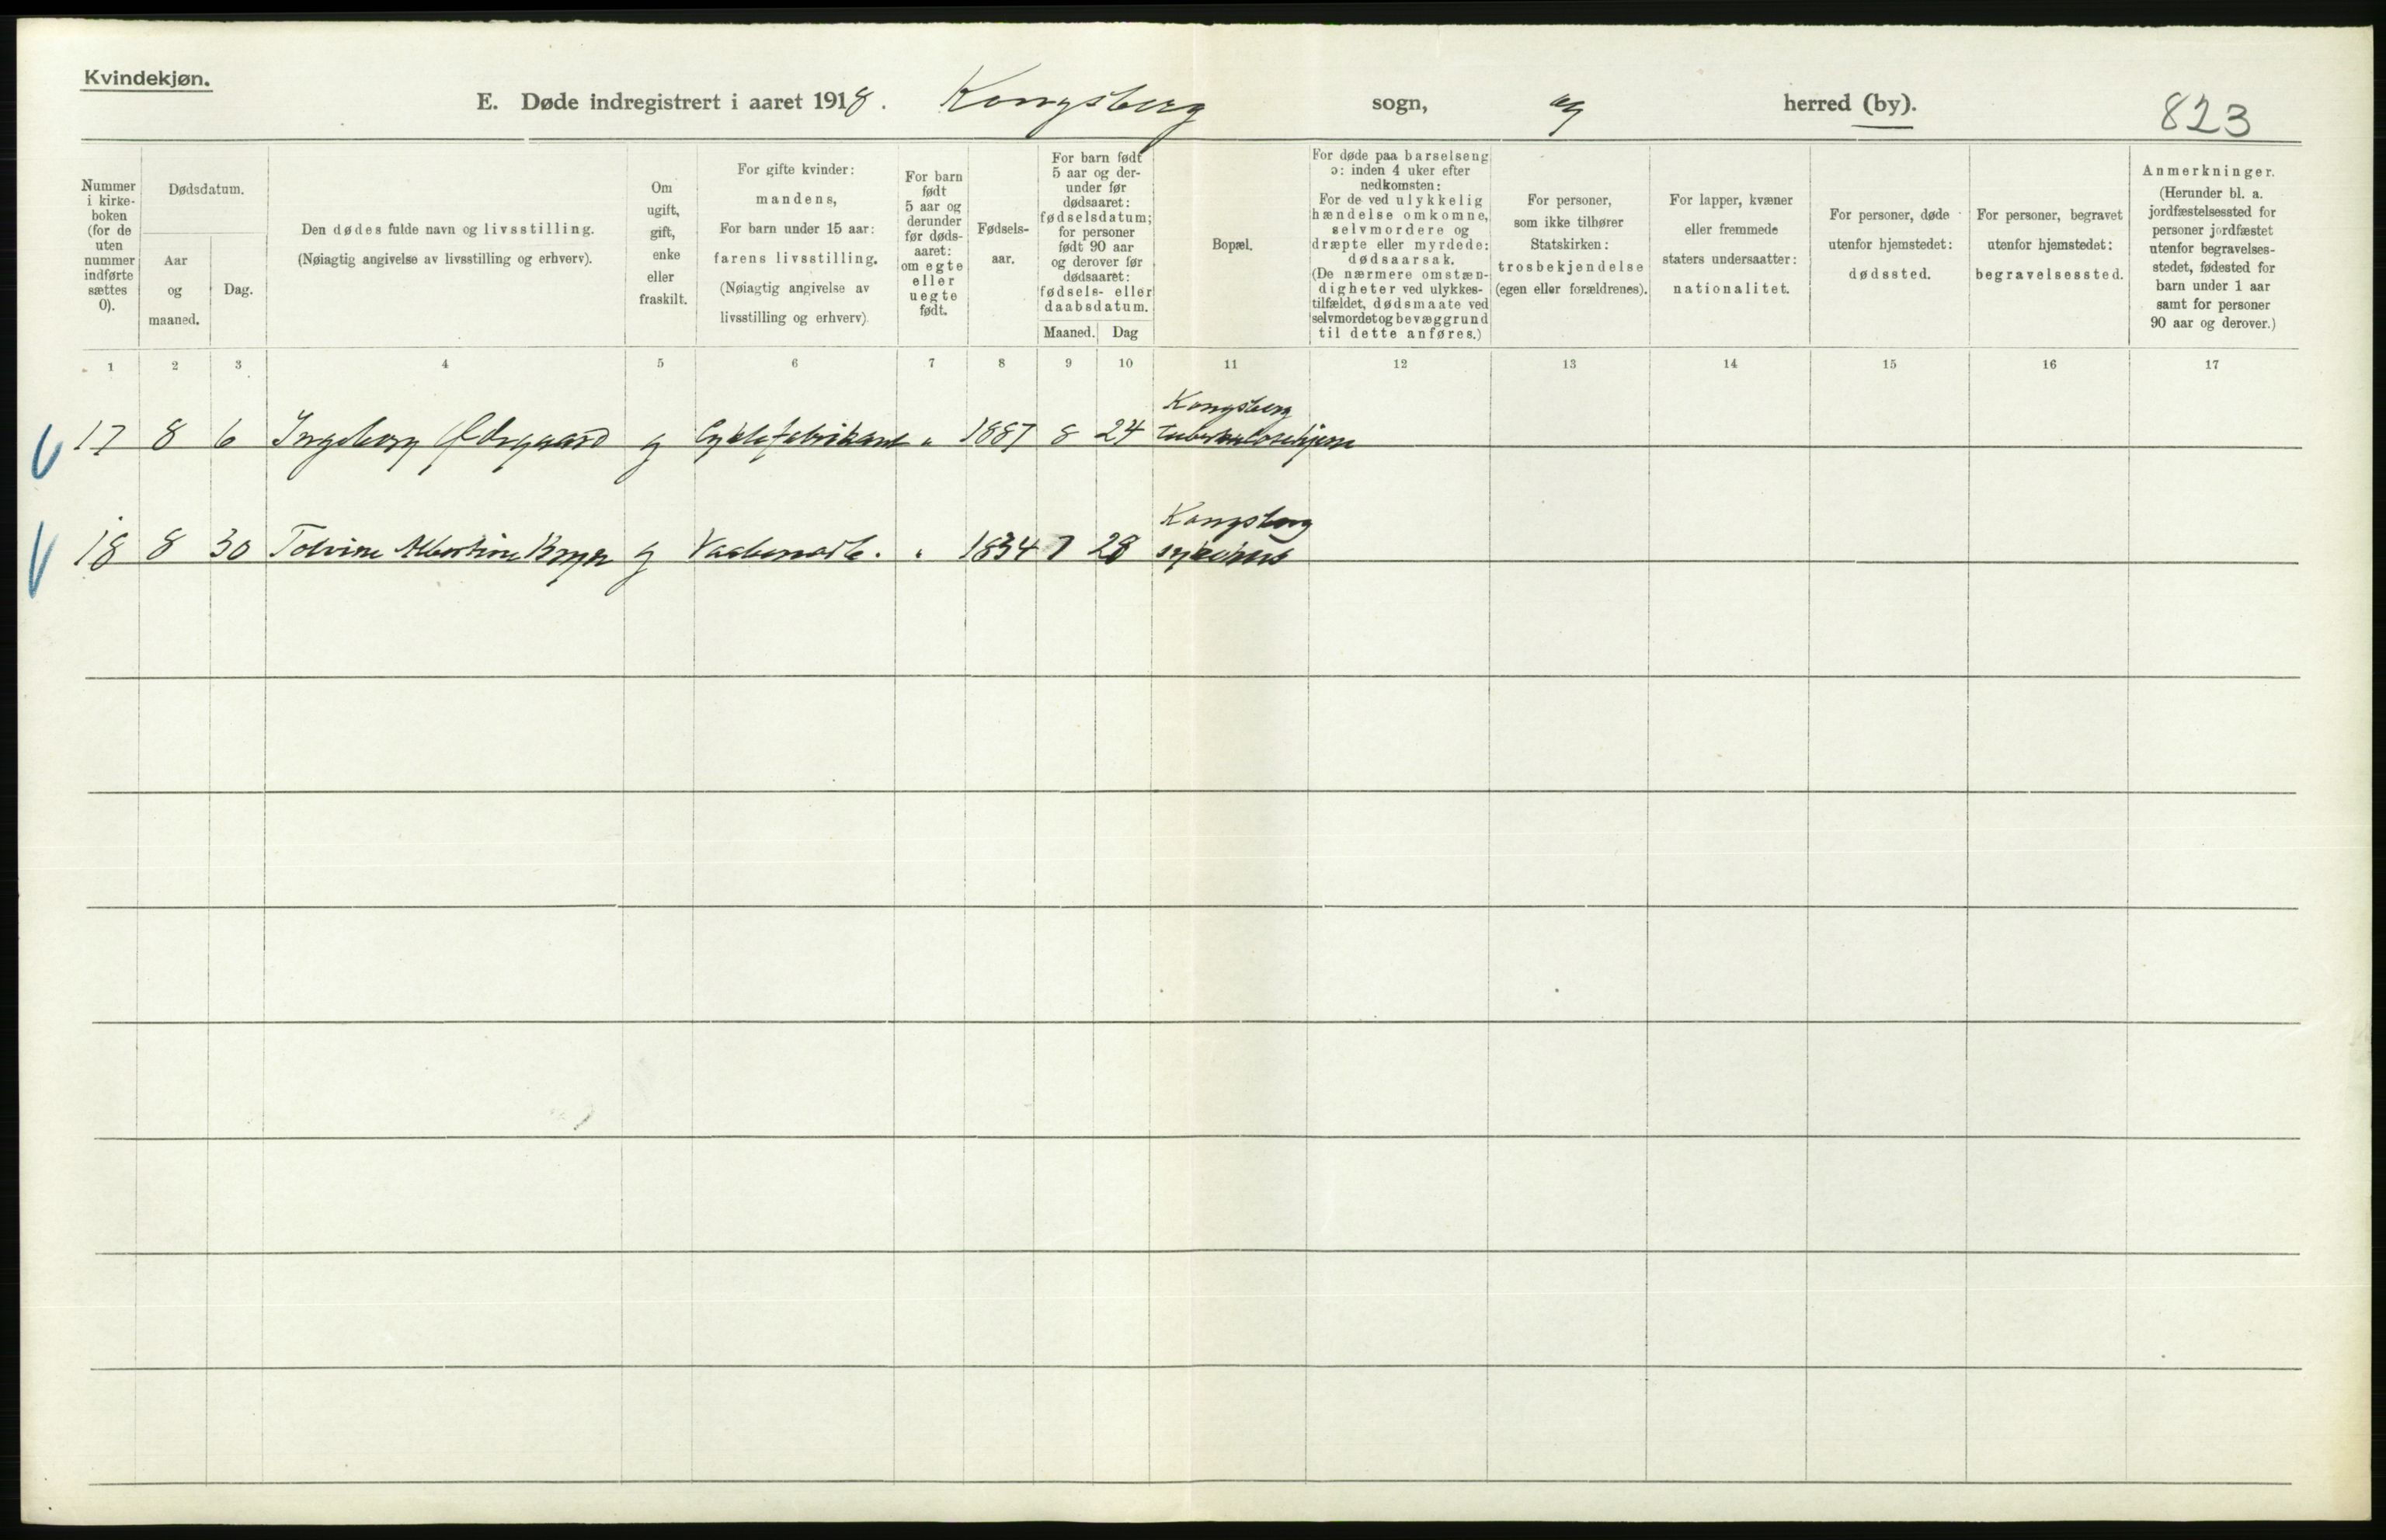 Kvindekjøn.
E. Døde indregistrert i aaret 1918. Kongsberg sogn, og herred (by). 823
Nummer i kirke- boken (for de uten nummer indførte sættes 0).
Dødsdatum.
Aar og maaned.
Dag.
Den dødes fulde navn og livsstilling.
(Nøiagtig angivelse av livsstilling og erhverv).
Om ugift, gift, enke eller fraskilt.
For gifte kvinder:
mandens,
For barn under 15 aar:
farens livsstilling.
(Nøiagtig angivelse av
livsstilling og erhverv)
For barn født 5 aar og derunder før døds- aaret: om egte eller uegte født.
Fødsels- aar.
For barn født 5 aar og der- under før dødsaaret: fødselsdatum; for personer født 90 aar og derover før dødsaaret: fødsels- eller daabsdatum.
Maaned. Dag
Bopæl.
For døde paa barselseng ɔ: inden 4 uker efter nedkomsten: For de ved ulykkelig hændelse omkomne, selvmordere og dræpte eller myrdede: dødsaarsak. (De nærmere omstæn- digheter ved ulykkes- tilfældet, dødsmaate ved selvmordet og bevæggrund til dette anføres.)
For personer, som ikke tilhører Statskirken: trosbekjendelse (egen eller forældrenes).
For lapper, kvæner eller fremmede staters undersaatter: nationalitet.
For personer, døde utenfor hjemstedet: dødssted.
For personer, begravet utenfor hjemstedet: begravelsessted.
Anmerkninger. (Herunder bl. a. jordfæstelsessted for personer jordfæstet utenfor begravelses- stedet, fødested for barn under 1 aar samt for personer 90 aar og derover.)
1 2 3 4 5 6 7 8 9 10 11 12 13 14 15 16 17
Kongsberg
17 8 6 Ingeborg Ødegaard g Cyklefabrikant " 1887 8 24 tuberkulosehjem
Kongsberg
18 8 30 Tolvine Albertine g " 1834 7 28 sykehus